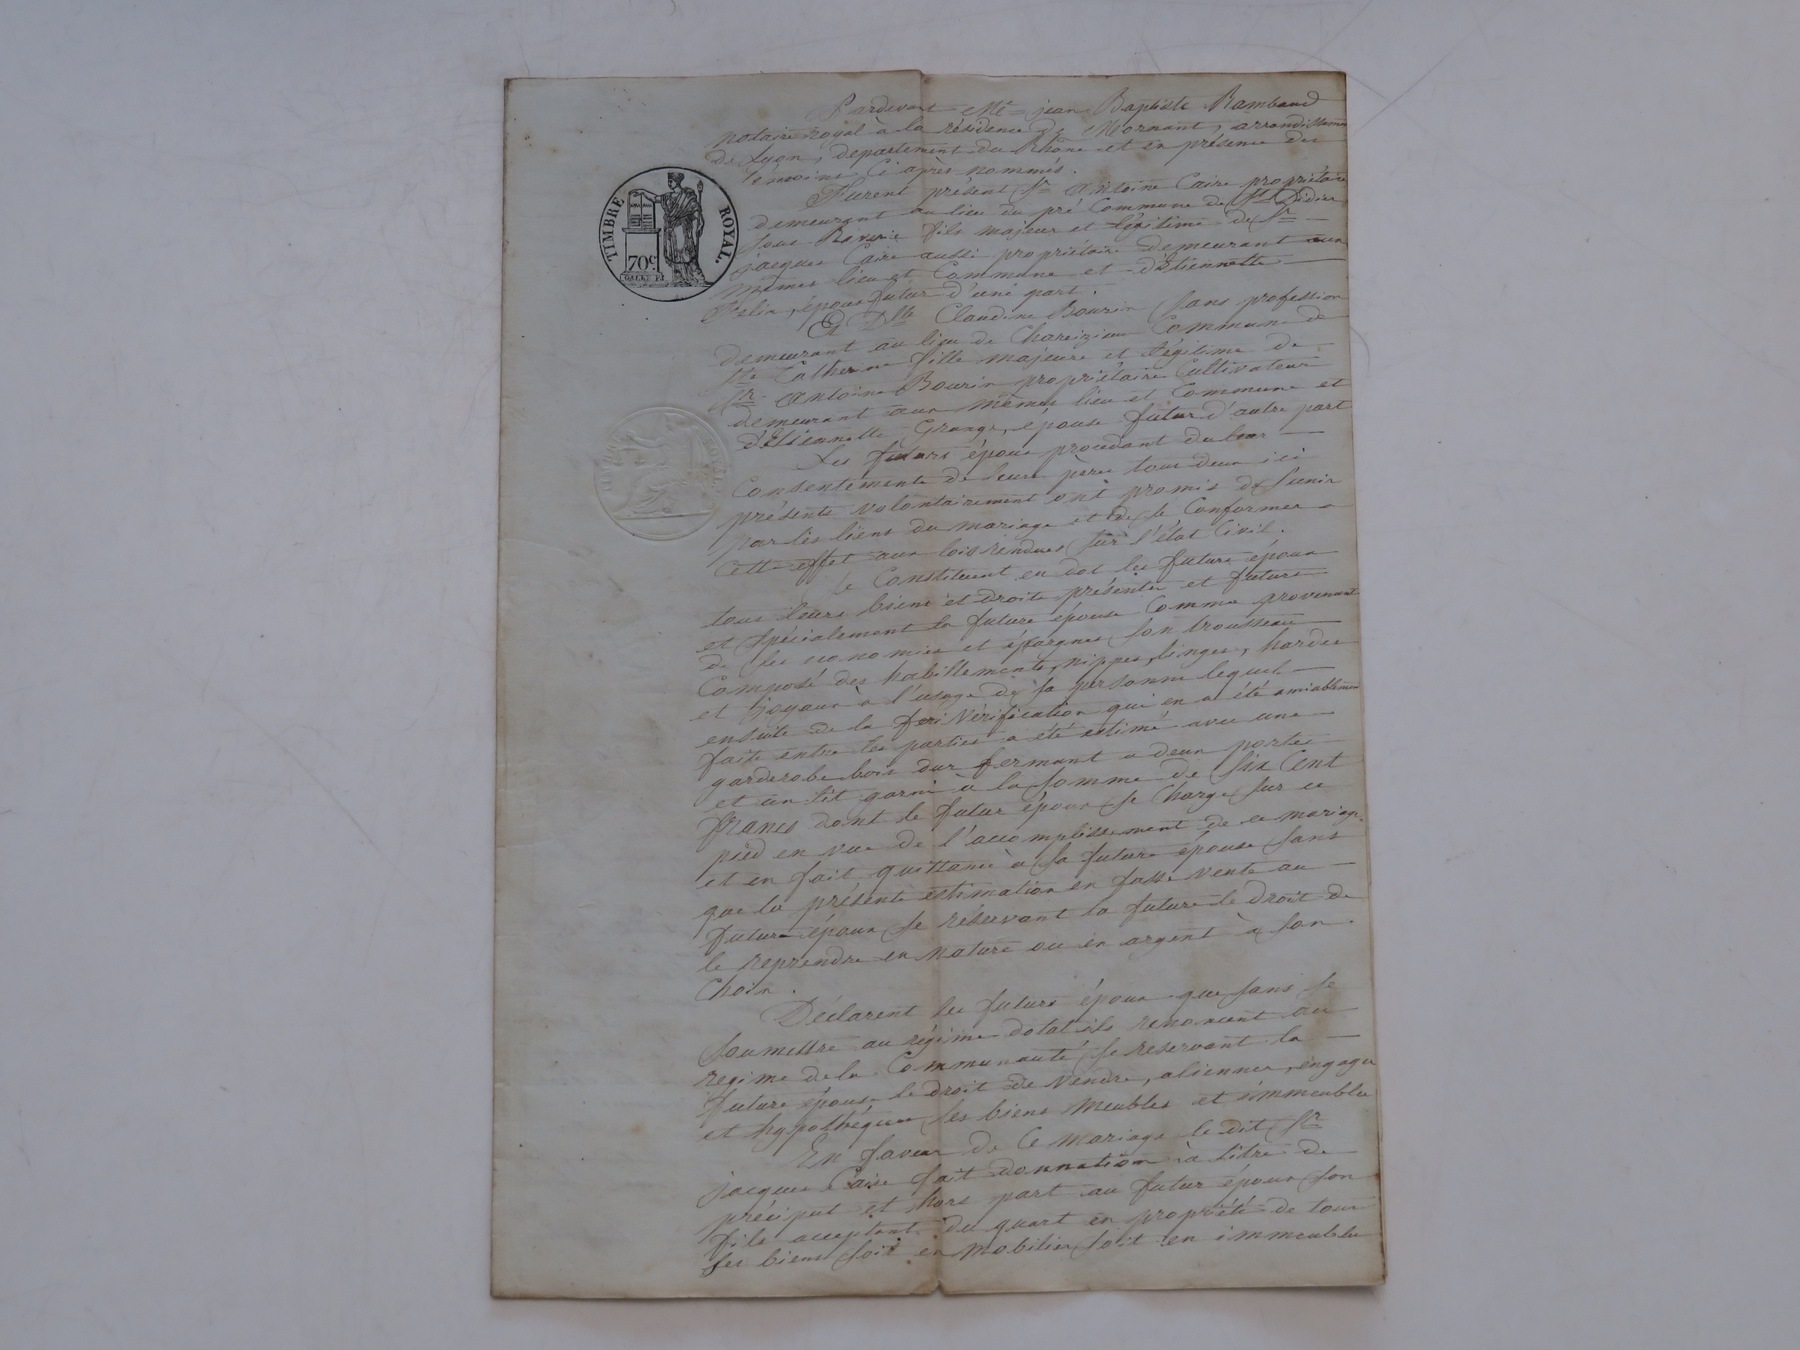 TIMBRE ROYAL.
70c.
Pardevant Me jean Baptiste Rambaud
notaire royal à la résidence de Mornant, arrondissement
de Lyon, département du Rhône et en présence des
témoins ci après nommés.
Furent présent Sr Antoine Caire propriétaire
demeurant au lieu du pré Commune de St Didier
sous Riverie fils majeur et légitime de Sr
jacques Caire aussi propriétaire demeurant aux
mêmes lieu et Commune et d'Etiennette
Felix, époux futur d'une part.
Et Dlle Claudine Bourin sans profession
demeurant au lieu de Commune de
Ste Catherine fille majeure et légitime de
Sr Antoine Bourin propriétaire Cultivateur
demeurant aux mêmes lieu et Commune et
d'Etiennette Grange, épouse future d'autre part
Les futurs époux procédant du leur
Consentements de leurs pères tous deux ici
présents volontairement ont promis de s'unir
par les liens du mariage et de se Conformer a
cette effet aux lois rendues sur l'état Civil.
Se Constituent en dot les future époux
tous leurs biens et droits présents et future
et spécialement la future épouse Comme provenant
de ses economies et épargnes son trousseau
Composé des habillements, nippes, linges, hardes
et joyaux à l'usage de sa personne lequel
ensuite de la vérification qui en a été amiablement
faite entre les parties a été estimé avec une
garderobe bois dur fermant a deux portes
et un lit garni à la somme de Six Cent
francs dont le futur époux se charge sur ce
pied en vue de l'accomplissement de ce mariage
et en fait quittance à sa future épouse sans
que la présente estimation en fasse vente au
futur époux se réservant la future le droit de
le reprendre en nature ou en argent à son
Choix.
Déclarent les futurs époux que sans se
soumettre au régime dotal ils renoncent au
regime de la Communauté se reservant la
future épouse le droit de vendre, alienner, engager
et hypothéquer ses biens meubles et immeubles
En faveur de Ce mariage le dit Sr
jacques Caire fait donnation à titre de
préciput et hors part au futur époux son
fils acceptant du quart en propriété de tous
ses biens soit en mobilier soit en immeubles